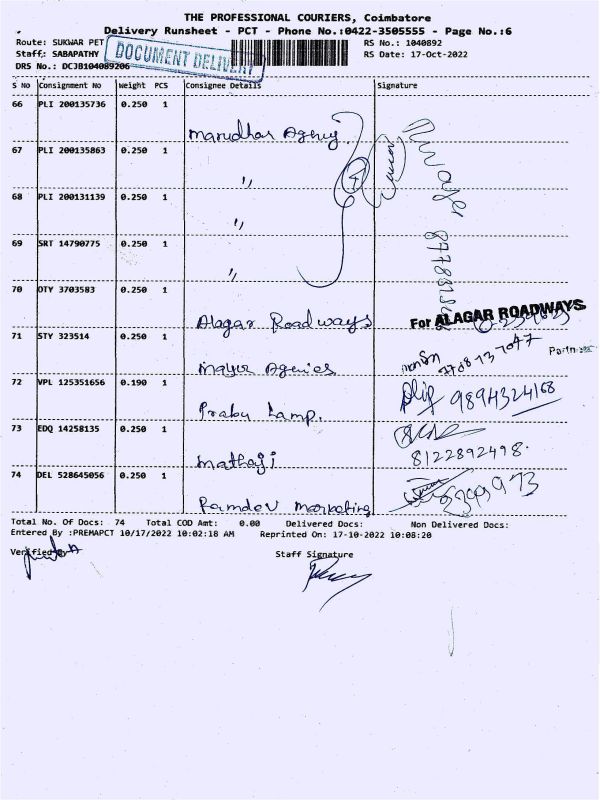 THE PROFESSIONAL COURIERS, Coimbatore
Delivery Runsheet - PCT - Phone No.:0422-3505555 - Page No.:6
Route: SUKWAR PET
RS No.: 1040892
Staff: SABAPATHY
DOCUMENT DELIVERY
RS Date: 17-Oct-2022
DRS No.: DCJB104089206
S No Consignment No Weight PCS Consignee Details Signature
66 PLI 200135736 0.250 1
Marudhar Agency
67 PLI 200135863 0.250 1
"
68 PLI 200131139 0.250 1
"
69 SRT 14790775 0.250 1
"
70 OTY 3703583 0.250 1
Alagar Roadways
For ALAGAR ROADWAYS
71 STY 323514 0.250 1
Partner
Mayur Agencies
7708737047
72 VPL 125351656 0.190 1
Prabu Lamp.
9894324168
73 EDQ 14258135 0.250 1
Mathaji
8122892498.
74 DEL 528645056 0.250 1
Ramdev Marketing
Total No. Of Docs: 74 Total COD Amt: 0.00 Delivered Docs: Non Delivered Docs:
Entered By :PREMAPCT 10/17/2022 10:02:18 AM Reprinted On: 17-10-2022 10:08:20
Verified By
Staff Signature